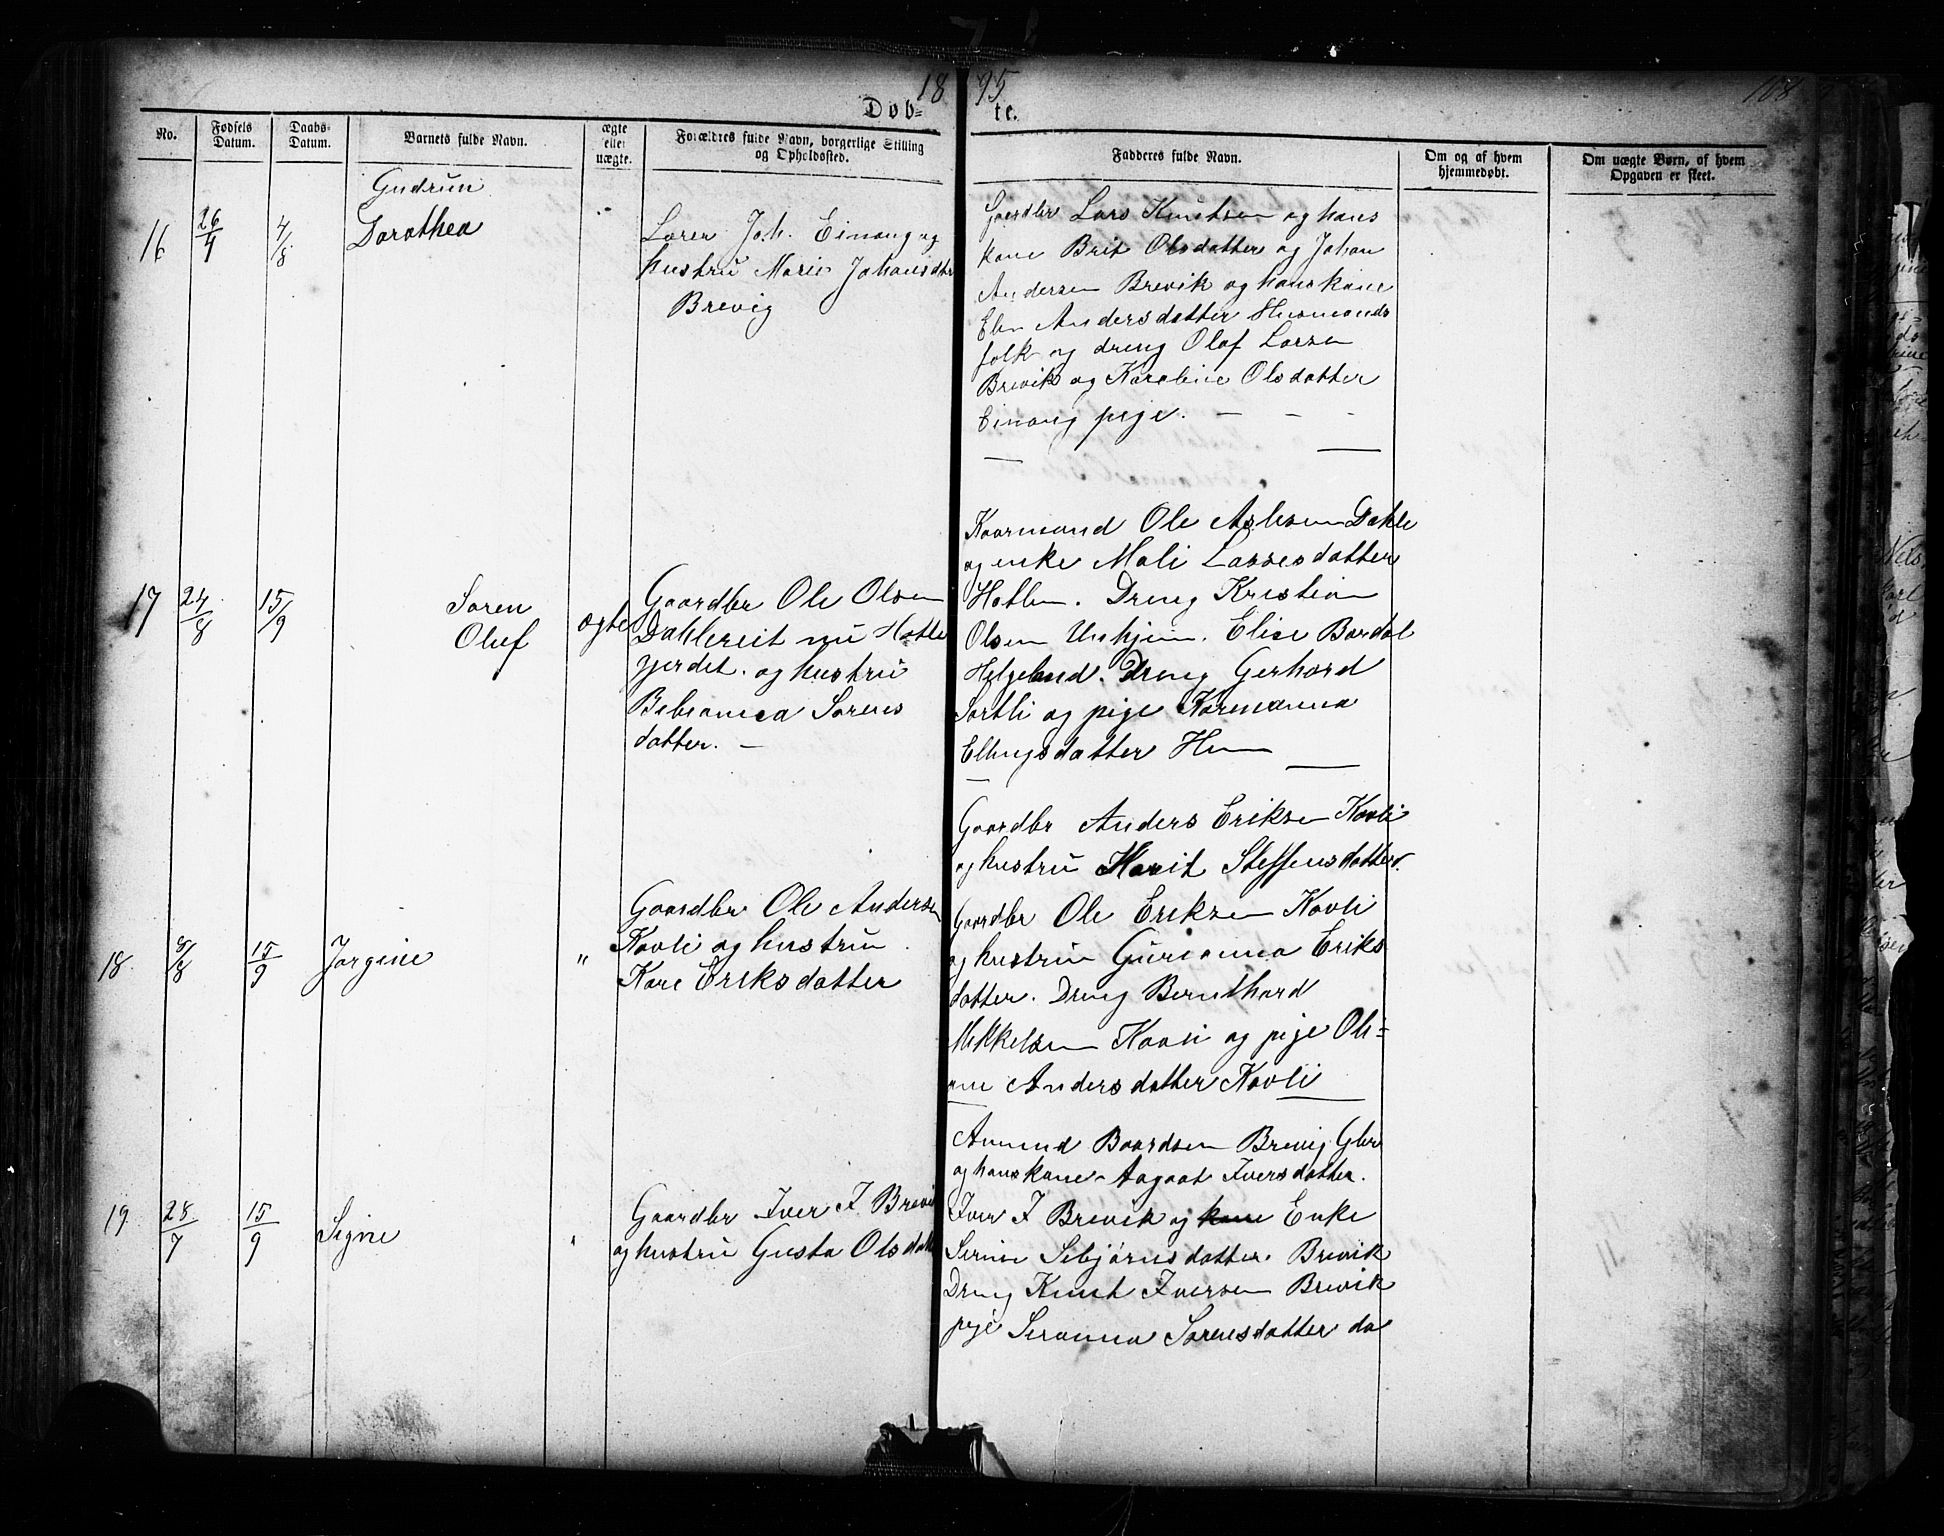 1895
108
Døbte.
No.
Fødsels Datum.
Daabs-Datum.
Barnets fulde Navn.
ægte eller uægte.
Forældres fulde Navn, borgerlige Stilling og Opholdssted.
Fadderes fulde Navn.
Om og af hvem hjemmedøbt.
Om uægte Børn, af hvem Opgaven er skeet.
16
26/4
4/8
Gudrun
Dorothea
Lærer Joh. Einang og
hustru Marie Johansdtr
Brevig
Gaardbr Lars Knutsen og hans
kone Brit Olsdatter og Johan
Andersen Brevik og hans kone
Elen Andersdatter Husmands
folk og dreng Olaf Larsen
Brevik og Karoline Olsdatter
Einang pige. - - -
17
24/8
15/9
Søren
Oluf
ægte
Gaardbr Ole Olsen
Dahlereit nu Hatle
gjerdet. og hustru
Bebianna Sørens
datter. —
Kaarmand Ole Aslesen Dahle
og enke Mali Lassesdatter
Hatlen. Dreng Kristian
Olsen Unhjem. Elise Bardal
Helgeland. Dreng Gerhard
Sortli og pige Karenanna
Ellingsdatter Hun
18
8/8
15/9
Jørgine
"
Gaardbr Ole Andersen
Kavli og hustru
Kari Eriksdatter
Gaardbr Anders Eriksen Kavli
og hustru Marit Steffensdatter.
Gaardbr Ole Eriksen Kavli
og hustru Gurianna Eriks
datter. Dreng Bernthard
Mikkelsen Kavli og pige Oli-
ane Andersdatter Kavli
19
28/7
15/9
Signe
"
Gaardbr Iver I Brevik
og hustru Gusta Olsdatt
Amund Baardsen Brevig Gbr
og hans kone Aagaat Iversdatter.
Iver I Brevik og kone Enke
Serine Sebjørnsdatter. Brevik
Dreng Knut Iversen Brevik
pige Serianna Sørensdatter do